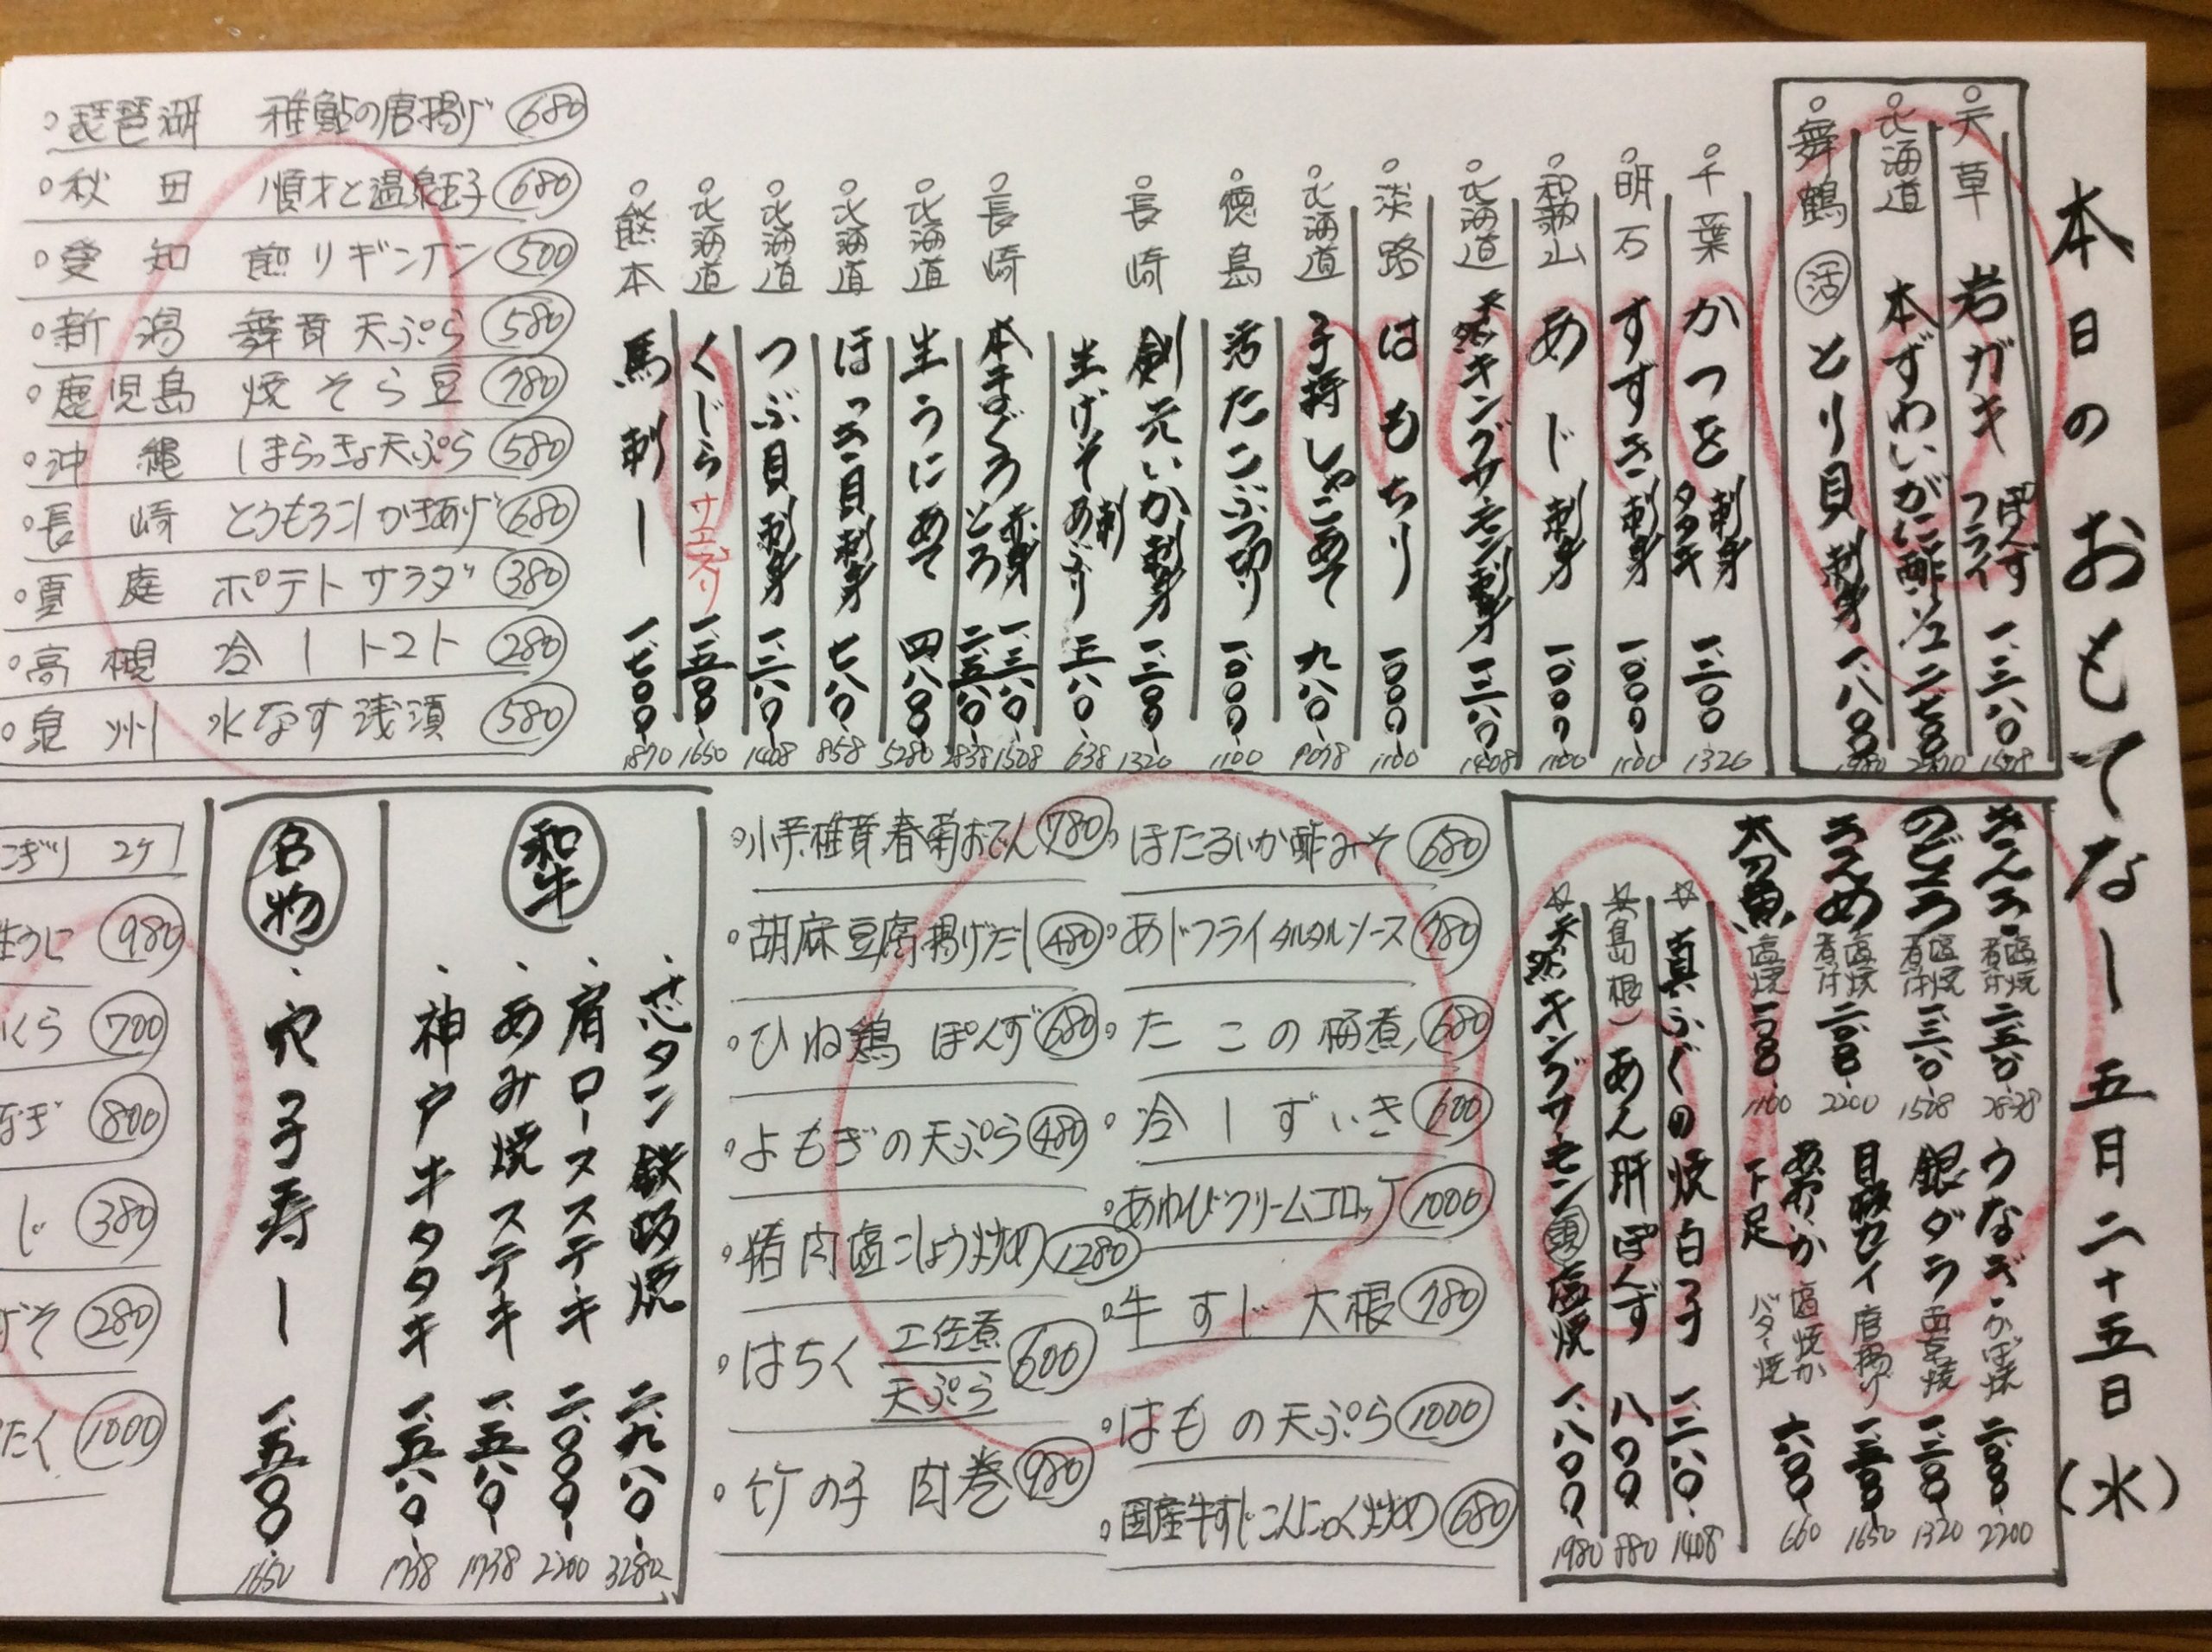 本日のおもてなし 五月二十五日(水)
天草 岩ガキ ぽんず フライ 一、三八〇 1518
北海道 本ずわいがに酢 二、七〇〇
舞鶴 活 とり貝 刺身 一、八〇〇 1980
千葉 かつを 刺身 タタキ 一、二〇〇 1320
明石 すずき 刺身 一、〇〇〇 1100
和歌山 あじ 刺身 一、〇〇〇 1100
北海道 天然キングサーモン刺身 一、二八〇 1408
淡路 はもちり 一、〇〇〇 1100
北海道 子持しゃこあて 九八〇 1078
徳島 活たこぶつ切り 一、〇〇〇 1100
長崎 剣先いか刺身 一、二〇〇 1320
生げそ 刺 あぶり 五八〇 638
長崎 本まぐろ 赤身 一、三八〇 1518
とろ 二、五八〇 2838
北海道 生うにあて 四、八〇〇 5280
北海道 ほっき貝刺身 七八〇 858
北海道 つぶ貝刺身 一、二八〇 1408
北海道 くじら サエズリ 一、五〇〇 1650
熊本 馬刺し 一、七〇〇 1870
琵琶湖 稚鮎の唐揚げ 680
秋田 順才と温泉玉子 680
愛知 煎りギンナン 500
新潟 舞茸天ぷら 580
鹿児島 焼そら豆 780
沖縄 しまらっきょ天ぷら 580
長崎 とうもろこしかきあげ 680
夏庭 ポテトサラダ 380
高槻 冷しトマト 280
泉州 水なす浅漬 580
きんき 塩焼 煮付 二、五八〇 2838
のどぐろ 塩焼 煮付 一、三八〇 1518
うえめ 塩焼 煮付 二、〇〇〇 2200
太刀魚 塩焼 一、〇〇〇 1100
うなぎ かば焼 二、〇〇〇 2200
銀ダラ 西京焼 一、二〇〇 1320
目板ガレイ 唐揚げ 一、五〇〇 1650
あおりいか 下足 塩焼か バター焼 六〇〇 660
真ふぐの焼白子 一、二八〇 1408
(島根) あん肝ぽんず 八〇〇 880
天然キングサーモン 頭 塩焼 一、八〇〇 1980
ほたるいか酢みそ 680
あじフライタルタルソース 780
たこの梅煮 680
冷しずいき 600
あわびクリームコロッケ 1000
牛すじ大根 780
はもの天ぷら 1000
国産牛すじこんにゃく炒め 680
小芋 椎茸 春菊おでん 780
胡麻豆腐揚げだし 480
ひね鶏 ぽんず 680
よもぎの天ぷら 480
猪肉塩こしょう炒め 1280
はちく 土佐煮 天ぷら 600
竹の子 肉巻 980
和牛
・芯タン鉄板焼 二、九八〇 3280
・肩ロースステキ 二、〇〇〇 2200
・あみ焼ステキ 一、五八〇 1738
・神戸牛タタキ 一、五八〇 1738
名物
・穴子寿し 一、五〇〇 1650
こぎり 2ケ
生うに 980
いくら 700
なぎ 800
じ 380
げそ 280
たく 1000